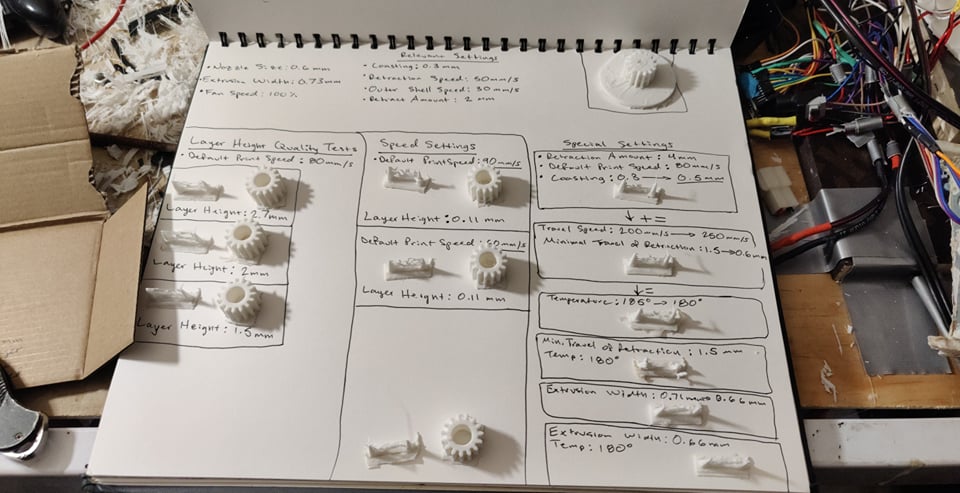 Relevant Settings
• Nozzle Size: 0.6 mm
• Extrusion Width: 0.73mm
• Fan Speed: 100%
• Coasting: 0.3 mm
• Retraction Speed: 50mm/s
• Outer Shell Speed: 30 mm/s
• Retract Amount: 2 mm
Layer Height Quality Tests
• Default Print Speed: 80mm/s
Layer Height: 2.7mm
Layer Height: 2mm
Layer Height: 1.5mm
Speed Settings
• Default Print Speed: 90mm/s
Layer Height: 0.11 mm
Default Print Speed: 60mm/s
Layer Height: 0.11 mm
Special Settings
• Retraction Amount: 4mm
• Default Print Speed: 80mm/s
• Coasting: 0.3 → 0.5mm
↓ +=
Travel Speed: 200mm/s → 250mm/s
Minimal Travel of Retraction: 1.5 → 0.6mm
↓ =
Temperature: 185° → 180°
Min. Travel of Retraction: 1.5 mm
Temp: 180°
Extrusion Width: 0.71mm → 0.66mm
Extrusion Width: 0.66mm
Temp: 180°